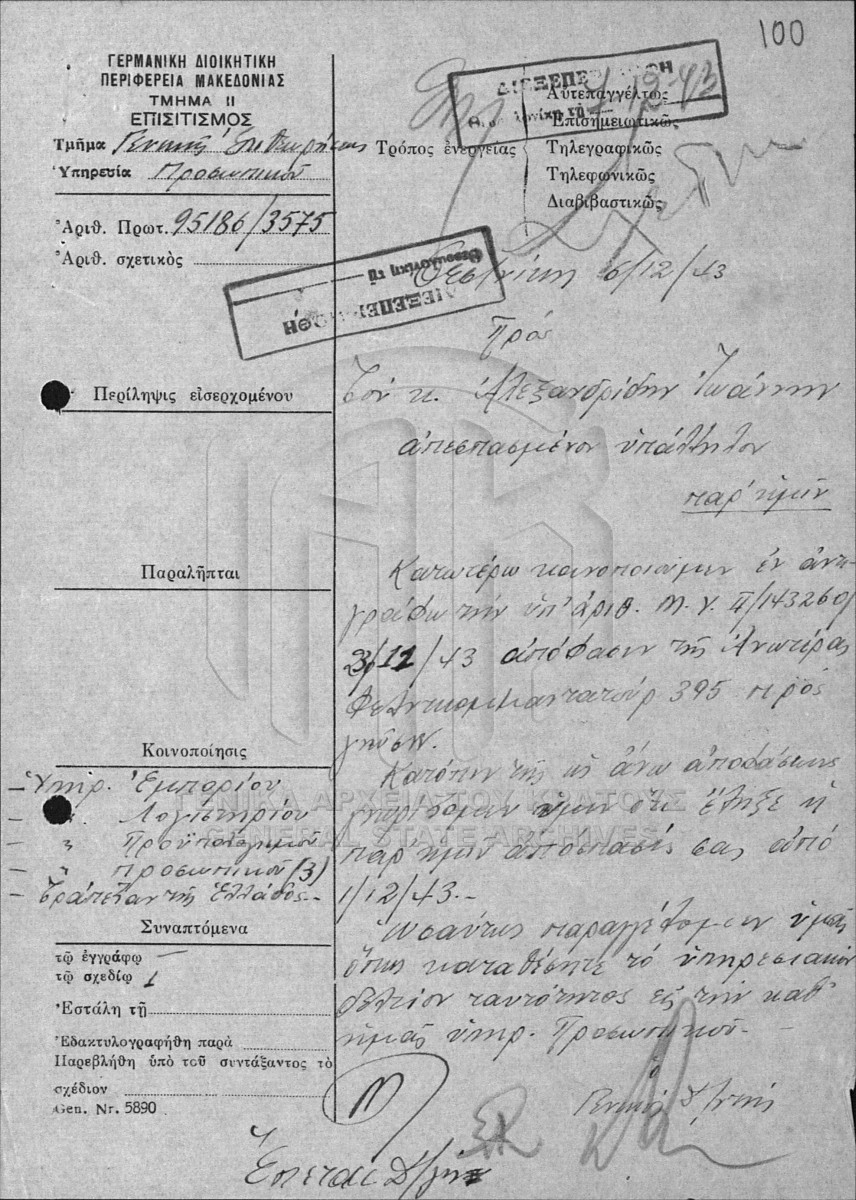 100
ΓΕΡΜΑΝΙΚΗ ΔΙΟΙΚΗΤΙΚΗ
ΠΕΡΙΦΕΡΕΙΑ ΜΑΚΕΔΟΝΙΑΣ
ΤΜΗΜΑ ΙΙ
ΕΠΙΣΙΤΙΣΜΟΣ
Τμῆμα Γενικῆς
Ὑπηρεσία Προσωπικοῦ
Ἀριθ. Πρωτ. 95186/3575
Ἀριθ. σχετικὸς
ΔΙΕΞΕΠΕΡΑΙΩΘΗ
Θεσσαλονίκη τῇ 7/12-43
Τρόπος ἐνεργείας
Αὐτεπαγγέλτως
Ἐπισημειωτικῶς
Τηλεγραφικῶς
Τηλεφωνικῶς
Διαβιβαστικῶς
ΔΙΕΞΕΠΕΡΑΙΩΘΗ
Θεσσαλονίκη τῇ
Θεσ/νίκη 6/12/43
Πρός
Τόν κ. Ἀλεξανδρίδην Ἰωάννην
ἀπεσπασμένον ὑπάλληλον
παρ' ἡμῖν
Κατωτέρω κοινοποιοῦμεν ἐν ἀντι-
γράφῳ τήν ὑπ' ἀριθ. M.V. II/143260/
3/12/43 ἀπόφασιν τῆς Ἀνωτέρας
Φελντκομμαντατούρ 395 πρός
γνῶσιν.
Κατόπιν τῆς ὡς ἄνω ἀποφάσεως
γνωρίζομεν ὑμῖν ὅτι ἔληξε ἡ
παρ' ἡμῖν ἀπόσπασίς σας ἀπό
1/12/43.-
Ὡσαύτως παραγγέλομεν ὑμᾶς
ὅπως καταθέσητε τό ὑπηρεσιακόν
δελτίον ταυτότητος εἰς τήν καθ'
ἡμᾶς ὑπηρ. Προσωπικοῦ.-
ὁ
Γενικός Δ/ντής
Περίληψις εἰσερχομένου
Παραλῆπται
Κοινοποίησις
- Ὑπηρ. Ἐμπορίου
- " Λογιστηρίου
- " Προϋπολογισμοῦ
- " Προσωπικοῦ (3)
- Τράπεζαν τῆς Ἑλλάδος-
Συναπτόμενα
τῷ ἐγγράφῳ —
τῷ σχεδίῳ 1
Ἐστάλη τῇ
Ἐδακτυλογραφήθη παρὰ
Παρεβλήθη ὑπὸ τοῦ συντάξαντος τὸ
σχέδιον
Gen. Nr. 5890
Ἕπεται
ΓΕΝΙΚΑ ΑΡΧΕΙΑ ΤΟΥ ΚΡΑΤΟΥΣ
GENERAL STATE ARCHIVES